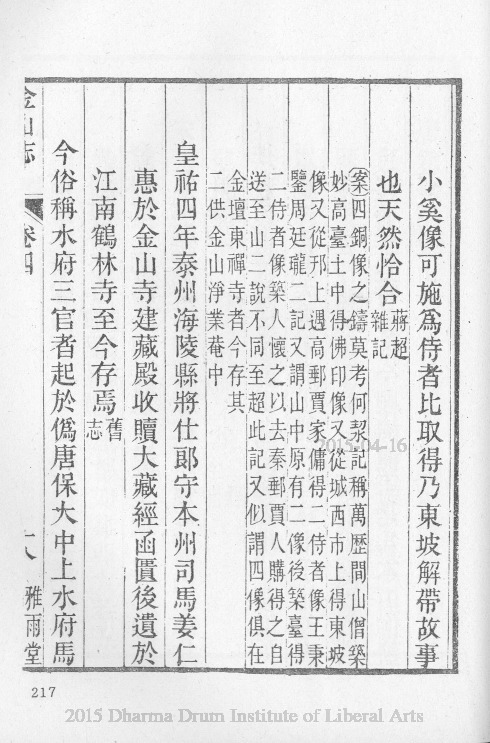 小奚像可施爲侍者比取得乃東坡解帶故事
也天然恰合蔣超
雜記
案四銅像之鑄莫考何㓗記稱萬歷間山僧築
妙高臺土中得佛印像又從城西市上得東坡
像又從邗上遇高郵賈家傭得二侍者像王秉
鑒周廷瓏二記又謂山中原有二像後築臺得
二侍者像築人懷之以去秦郵賈人購得之自
送至山二說不同至超此記又似謂四像俱在
金壇東禪寺者今存其
二供金山淨業菴中
皇祐四年泰州海陵縣將仕郎守本州司馬姜仁
惠於金山寺建藏殿收贖大藏經函匱後遺於
江南鶴林寺至今存焉舊
志
今俗稱水府三官者起於僞唐保大中上水府馬
金山志
卷四
雅雨堂
217
2015-04-16
2015 Dharma Drum Institute of Liberal Arts